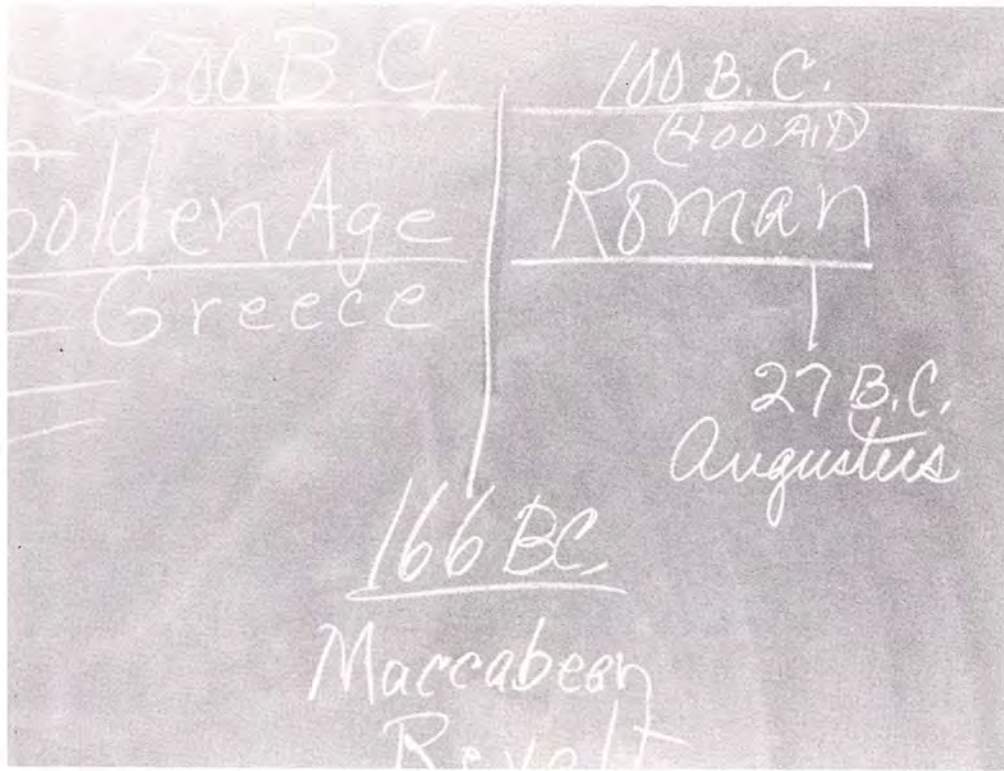 500 B.C.
Golden Age
Greece
100 B.C.
(400 A.D)
Roman
27 B.C.
Augustus
166 BC.
Maccabean
Revolt